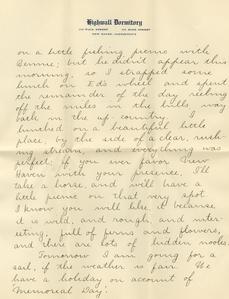 Highwall Dormitory
NEW HAVEN, CONNECTICUT
on a little fishing picnic with
Bennie; but he didn't appear this
morning, so I strapped some
lunch on Ed's wheel and spent
the remainder of the day reeling
off the miles in the hills way
back in the up-country. I
lunched on a beautiful little
place, by the side of a clear, rush-
ing stream, and everything was
perfect; if you ever favor New
Haven with your presence, I'll
take a horse, and will have a
little picnic on that very spot.
I know you will like it because
it is wild, and rough, and inter-
esting, full of ferns and flowers,
and there are lots of hidden nooks.
Tomorrow I am going for a
sail, if the weather is fair. We
have a holiday on account of
Memorial Day.